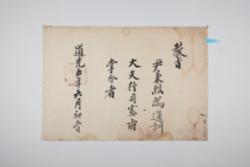 教旨
尹東烈為通訓
大夫行司憲府
掌令者
道光五年六月初五日